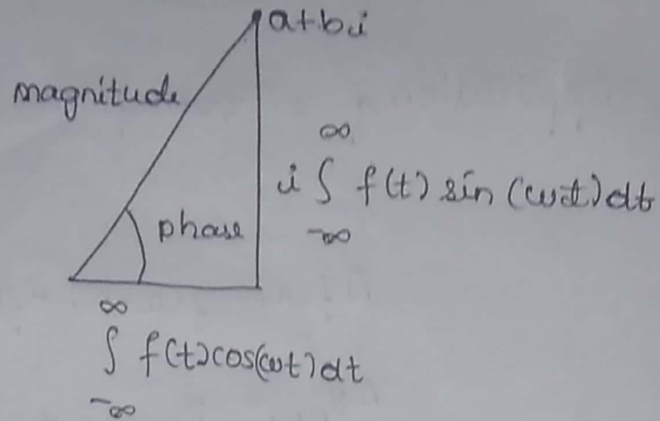 a+bi
magnitude
∞
i ∫ f(t) sin (ωt) dt
-∞
phase
∞
∫ f(t) cos(ωt) dt
-∞